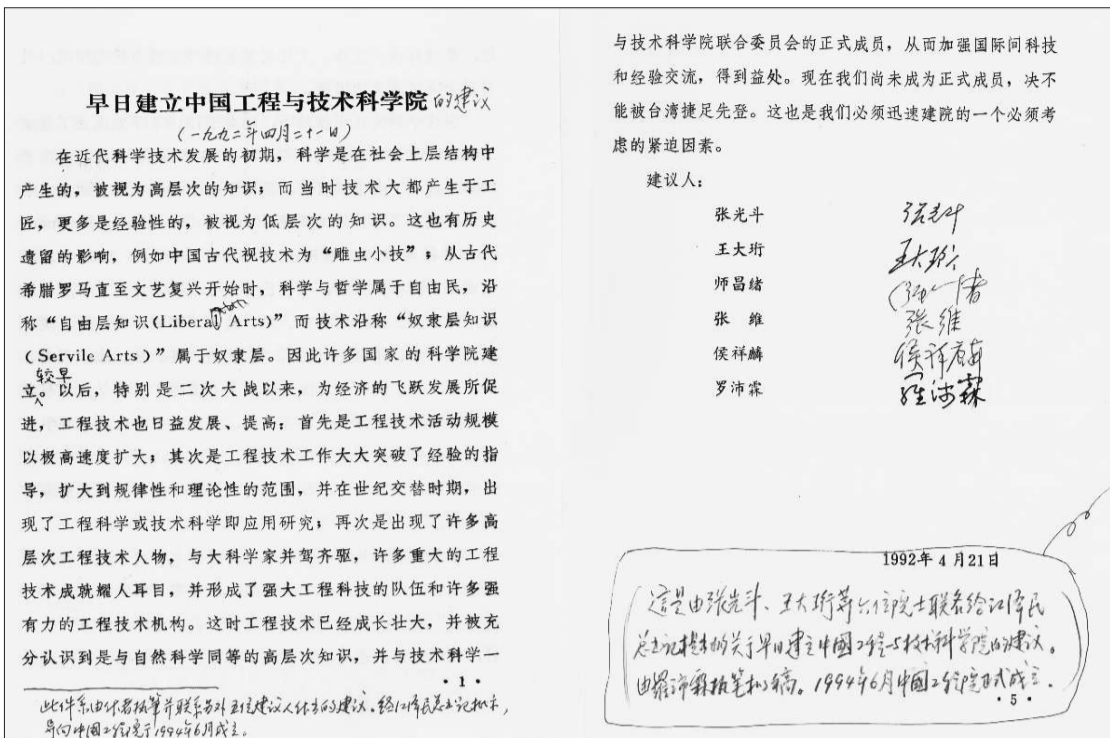 早日建立中国工程与技术科学院的建议
(一九九二年四月二十一日)
在近代科学技术发展的初期，科学是在社会上层结构中
产生的，被视为高层次的知识；而当时技术大都产生于工
匠，更多是经验性的，被视为低层次的知识。这也有历史
遗留的影响，例如中国古代视技术为“雕虫小技”；从古代
希腊罗马直至文艺复兴开始时，科学与哲学属于自由民，沿
称“自由层知识(Liberal Arts)”而技术沿称“奴隶层知识
(Servile Arts)”属于奴隶层。因此许多国家的科学院建
立较早。以后，特别是二次大战以来，为经济的飞跃发展所促
进，工程技术也日益发展、提高：首先是工程技术活动规模
以极高速度扩大；其次是工程技术工作大大突破了经验的指
导，扩大到规律性和理论性的范围，并在世纪交替时期，出
现了工程科学或技术科学即应用研究；再次是出现了许多高
层次工程技术人物，与大科学家并驾齐驱，许多重大的工程
技术成就耀人耳目，并形成了强大工程科技的队伍和许多强
有力的工程技术机构。这时工程技术已经成长壮大，并被充
分认识到是与自然科学同等的高层次知识，并与技术科学一
·1·
此件系由作者执笔并联系另外五位建议人作出的建议。经江泽民总书记批示，
导向中国工程院于1994年6月成立。
与技术科学院联合委员会的正式成员，从而加强国际间科技
和经验交流，得到益处。现在我们尚未成为正式成员，决不
能被台湾捷足先登。这也是我们必须迅速建院的一个必须考
虑的紧迫因素。
建议人：
张光斗 张光斗
王大珩 王大珩
师昌绪 师昌绪
张 维 张维
侯祥麟 侯祥麟
罗沛霖 羅沛霖
1992年4月21日
這是由张光斗、王大珩等六位院士联名给江泽民
总书记提出的关于早日建立中國工程与技术科学院的建议。
由羅沛霖执笔拟稿。1994年6月中國工程院正式成立.
·5·